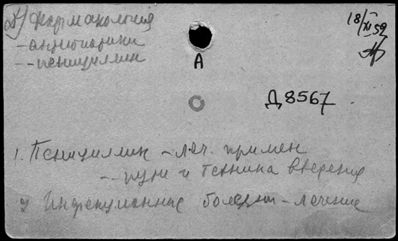 Фармакология
18/XI 52
- антибиотики
-- пенициллин
А
Д8567
1. Пенициллин - леч. примен
-- пути и техника введения
2 Инфекционные болезни - лечение